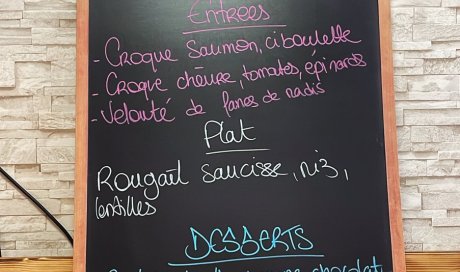 Entrées
- Croque saumon, ciboulette
- Croque chèvre, tomates, épinards
- Velouté de fanes de radis
Plat
Rougail saucisse, riz,
lentilles
DESSERTS
chocolat